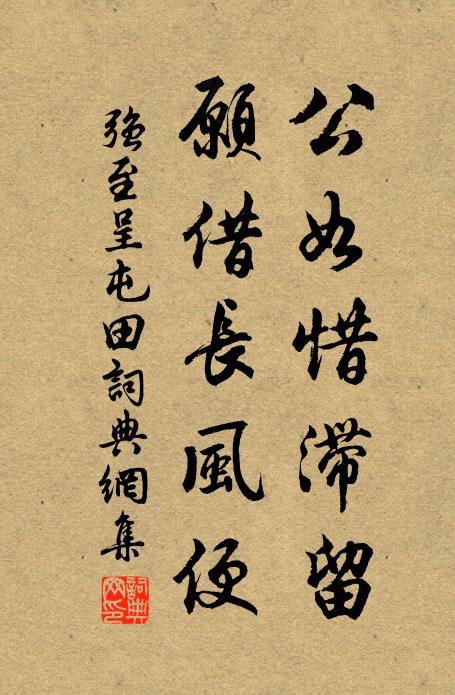 公如惜滯留
願借長風便
強至呈屯田詞典網集
詞典網印